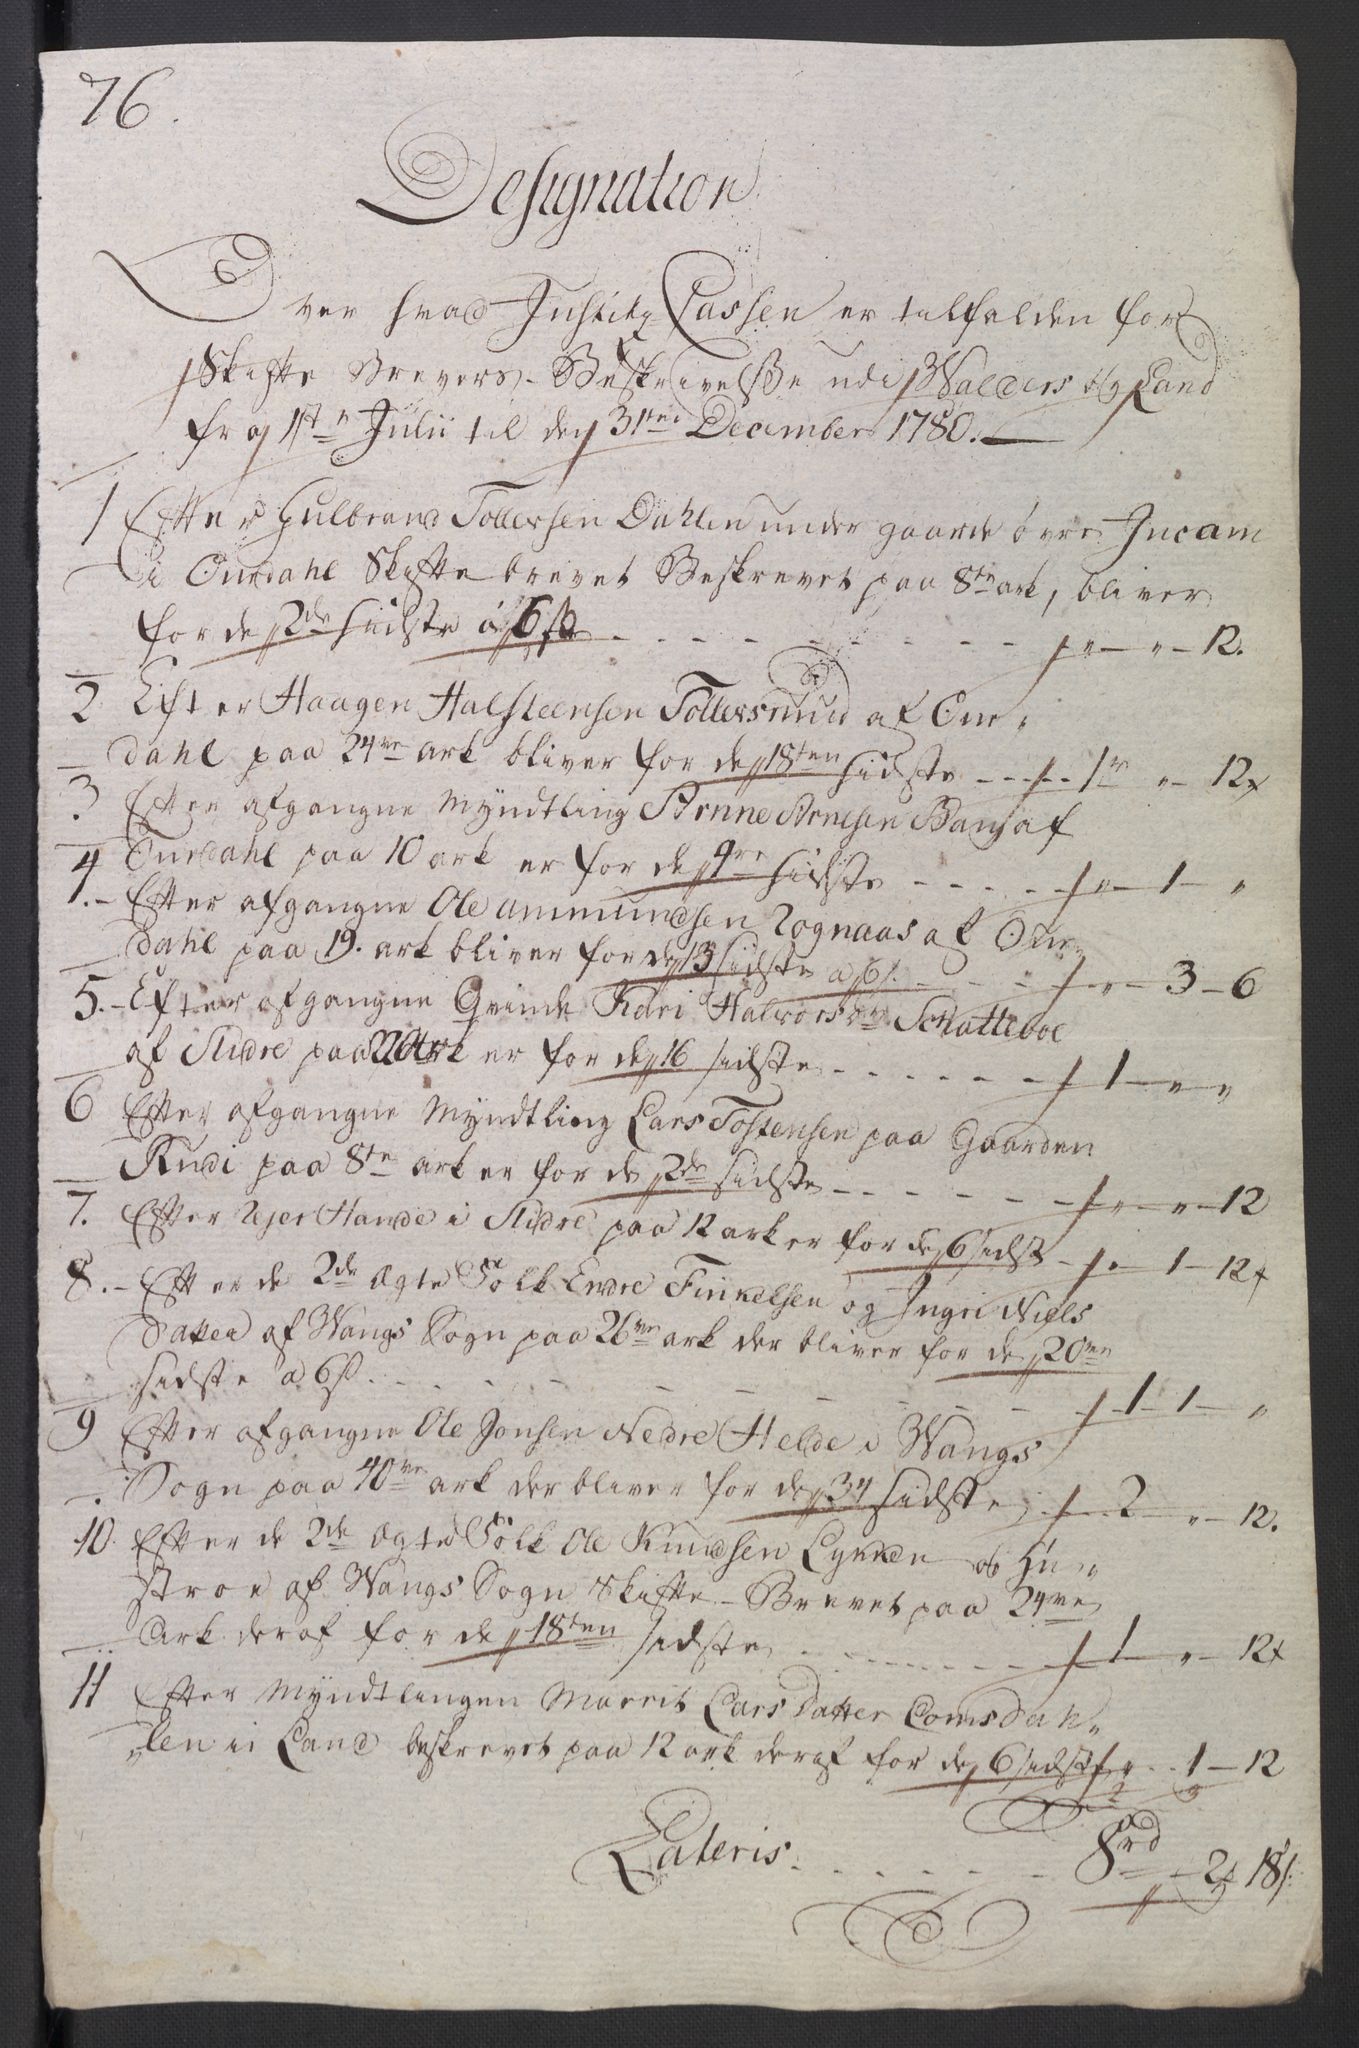 76.
Designation
Over hvad Justitz Cassen er tilfalden for
Skifte Brevers Beskrivelsße udi Walders og Land
fra 1ste Julii til den 31te December 1780.
1 Efter Gulbrand Tollersen Dahlen under gaarde øvre
i Ourdahl Skifte brevet Beskrevet paa 8te ark, bliver
for de 2de sidste á 6 ß - - - " - " - 12.
2 Efter Haagen Halsteensen Tollersruud af Our-
dahl paa 24re ark bliver for de 18ten sidste - - - 1 - " - 12
3. Efter afgangne Myndtling Arnne Arnesen Bang af
Ourdahl paa 10 ark er for de 4re sidste - - - " - 1 - "
4. - Efter afgangne Ole Ammundsen Rognaas af Our-
dahl paa 19. ark bliver for de 13 sidste a 6 ß. - - " - 3 - 6
5. - Efter afgangne Qvinde Kari Halvorsdr. Schatteboe
af Slidre paa 22 Ark er for de 16 sidste - - - 1 - " - "
6 Efter afgangne Myndtling Lars Tostensen paa Gaarden
Rudi paa 8te ark er for de 2de sidste - - - " - " - 12
7. Efter Hande i Slidre paa 12 ark er for de 6 sidst - " - 1 - 12
8. - Efter de 2de Ægte Folk Endre Finkelsen og Ingri Niels
Datter af Wangs Sogn paa 26 ark der bliver for de 20
sidste a 6 ß. - - - 1 - 1 - "
9 Efter afgangne Ole Jonsen Nedre Helde i Wangs
Sogn paa 40 ark der bliver for de 34 sidste - - 2 - " - 12.
10. Efter de 2de Ægte Folk Ole Knudsen Lykken og Hu-
stroe af Wangs Sogn Skifte-Brevet paa 24re
Ark deraf for de 18ten sidste - - - 1 - " - 12
11 Efter Myndtlingen Marrit Lars Datter Comsdah-
len i Land beskrevet paa 12 ark deraf for de 6 sidste " - 1 - 12
Lateris - - - 8 rd 2 18 ß.